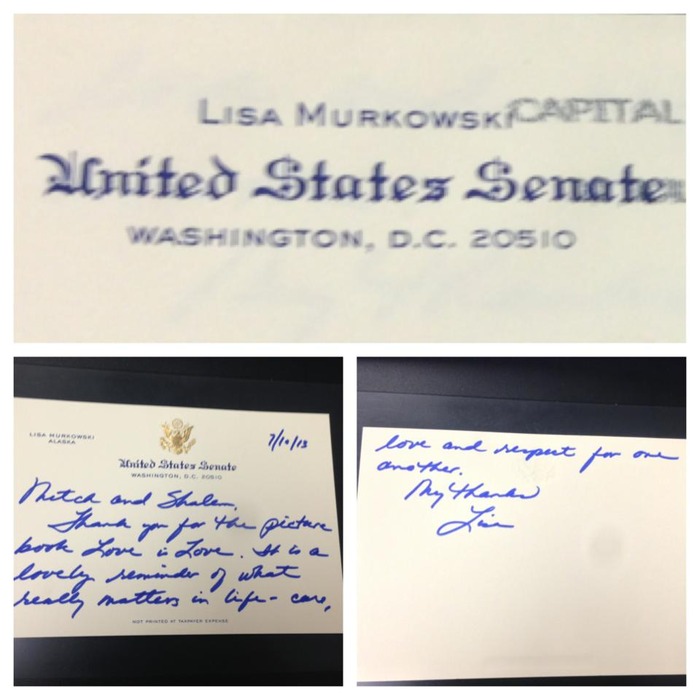 LISA MURKOWSKI CAPITAL
United States Senate
WASHINGTON, D.C. 20510
LISA MURKOWSKI
ALASKA
7/10/13
United States Senate
WASHINGTON, D.C. 20510
Mitch and Shalem,
Thank you for the picture
book Love is Love. It is a
lovely reminder of what
really matters in life - care,
NOT PRINTED AT TAXPAYER EXPENSE
love and respect for one
another.
My thanks
Lisa